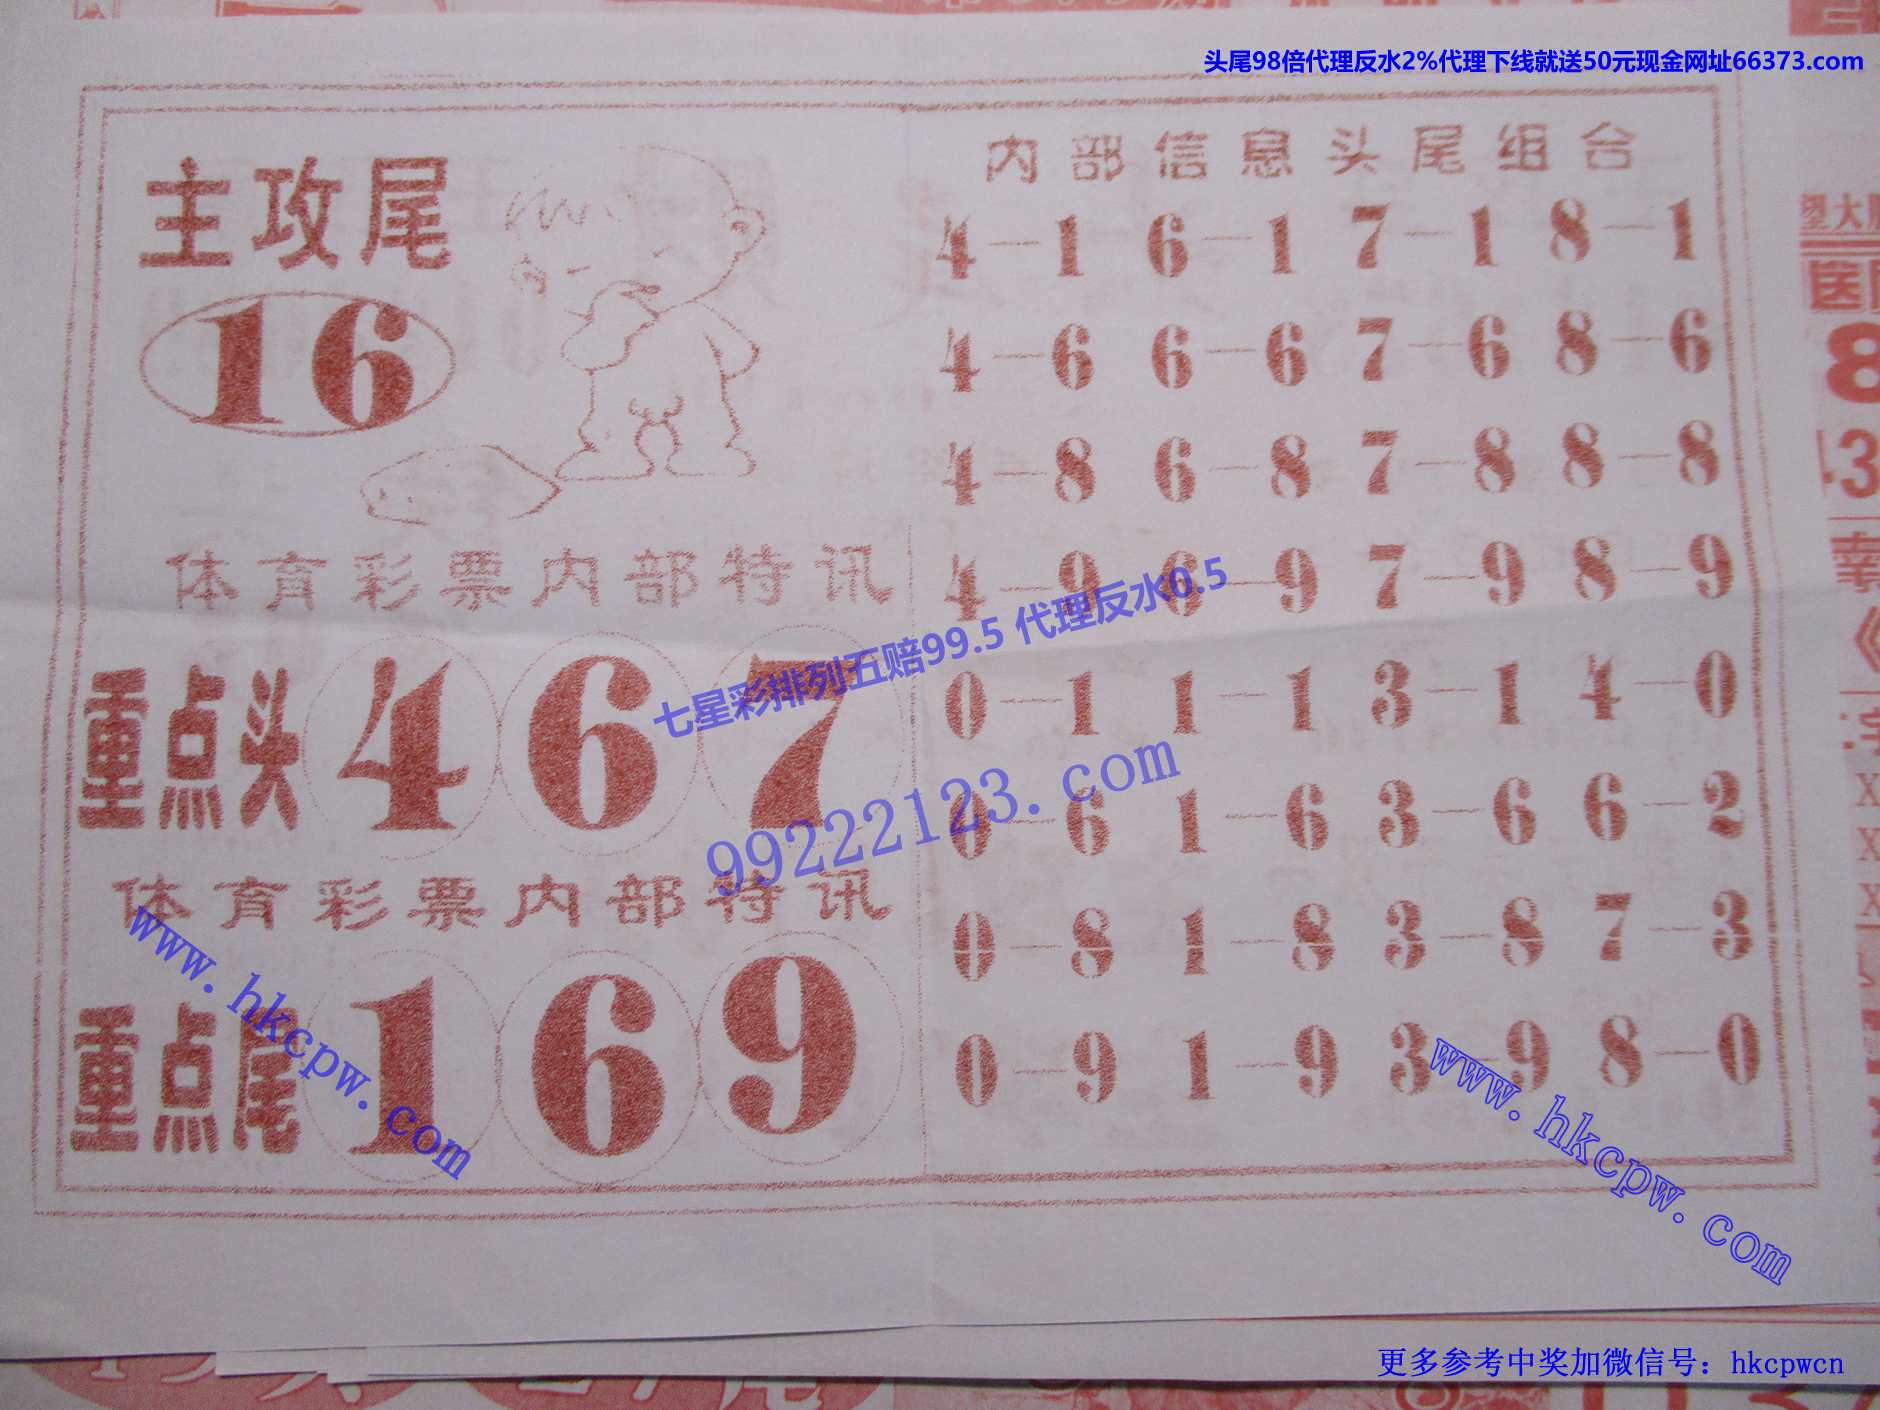 头尾98倍代理反水2%代理下线就送50元现金网址66373.com
主攻尾
16
内部信息头尾组合
4—1 6—1 7—1 8—1
4—6 6—6 7—6 8—6
4—8 6—8 7—8 8—8
4—9 6—9 7—9 8—9
0—1 1—1 3—1 4—0
0—6 1—6 3—6 6—2
0—8 1—8 3—8 7—3
0—9 1—9 3—9 8—0
体育彩票内部特讯
重点头 4 6 7
体育彩票内部特讯
重点尾 1 6 9
七星彩排列五赔99.5 代理反水0.5
99222123.com
www.hkcpw.com
www.hkcpw.com
更多参考中奖加微信号：hkcpwcn